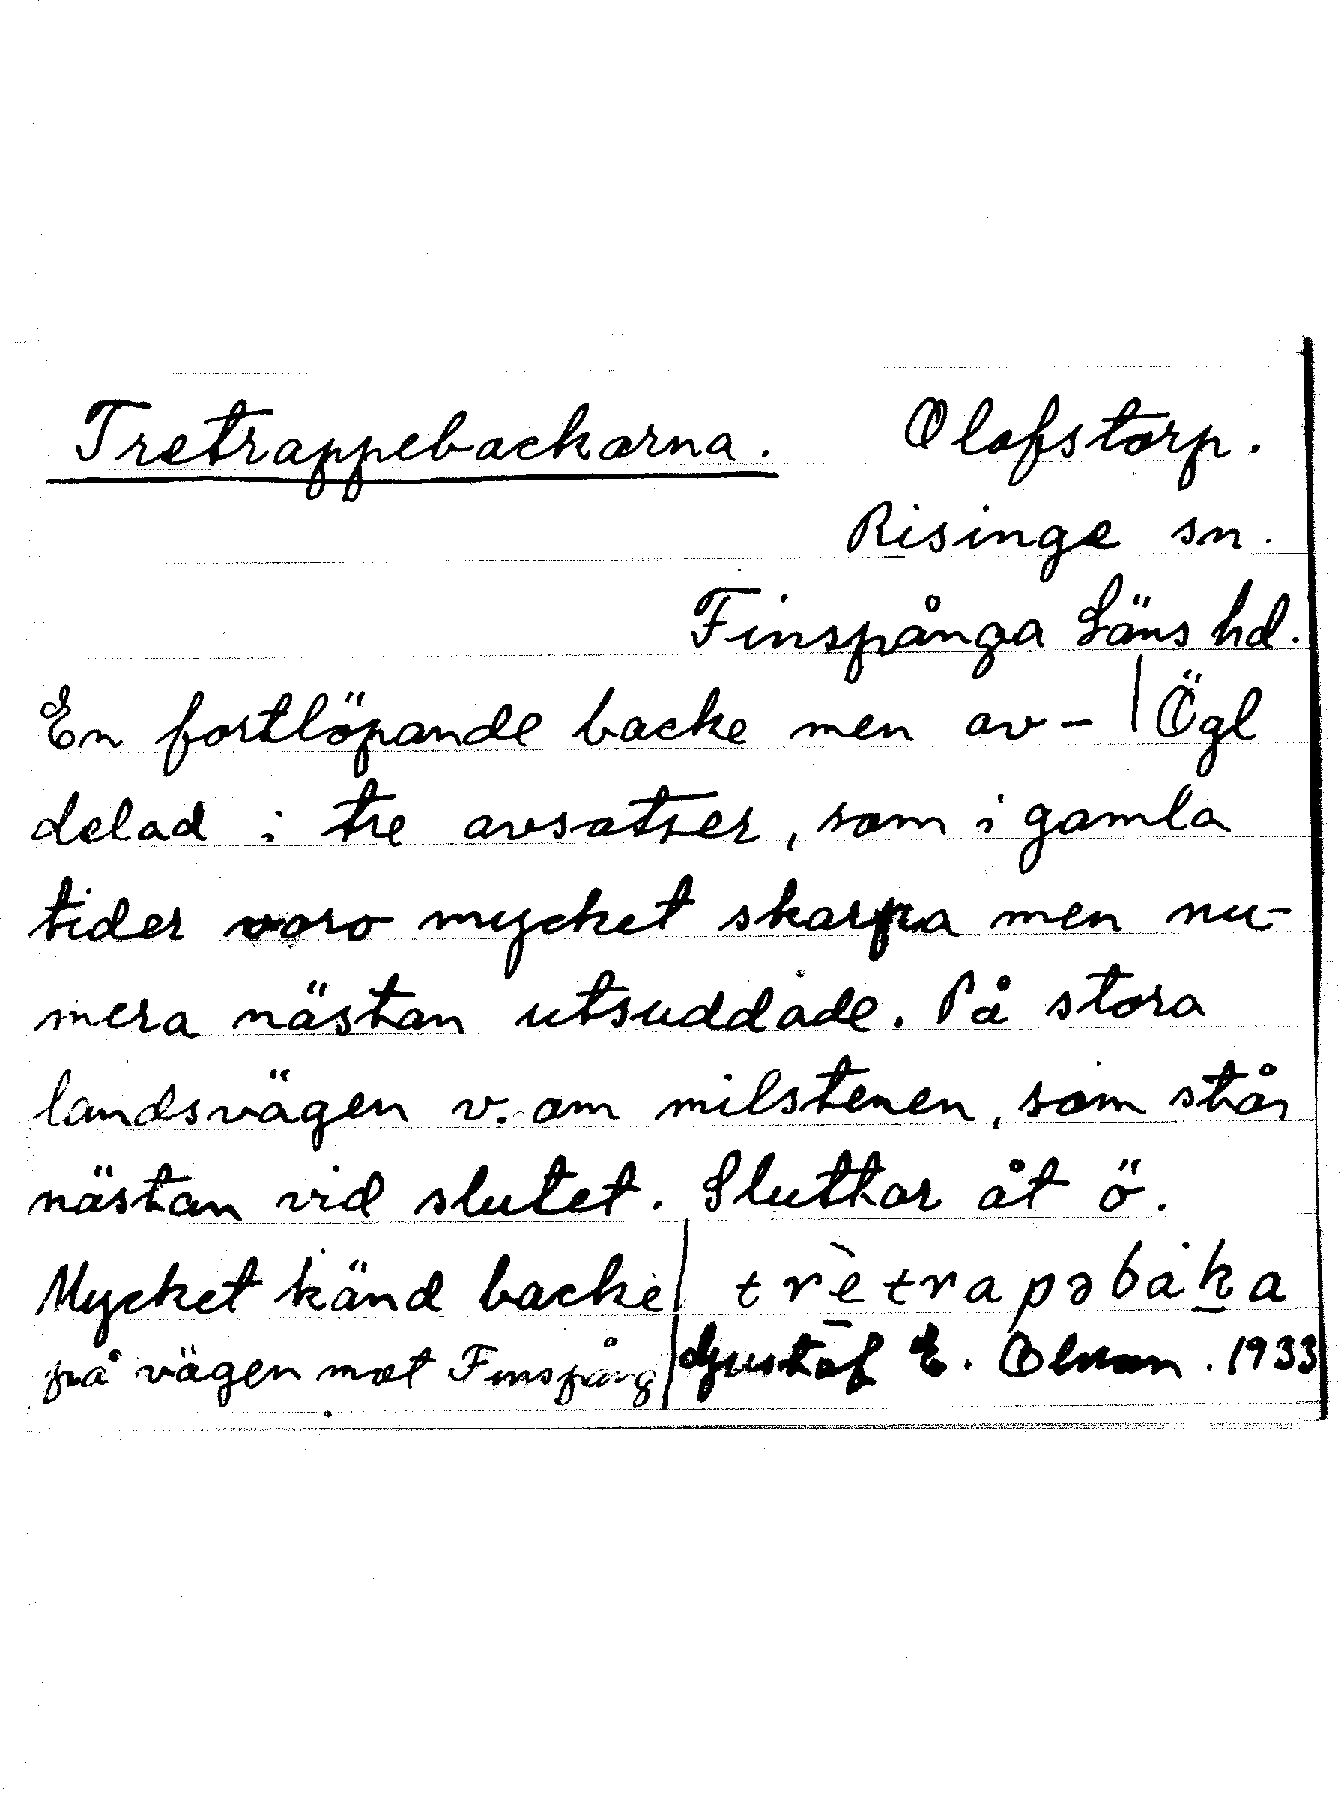 Tretrappebackarna. Olofstorp.
Risinge sn.
Finspånga Läns hd.
En fortlöpande backe men av- | Ögl
delad i tre avsatser, som i gamla
tider voro mycket skarpa men nu-
mera nästan utsuddade. På stora
landsvägen v. om milstenen, som står
nästan vid slutet. Sluttar åt ö.
Mycket känd backe | trètrapəbàka
på vägen mot Finspång | Gustaf E. Olsson. 1933